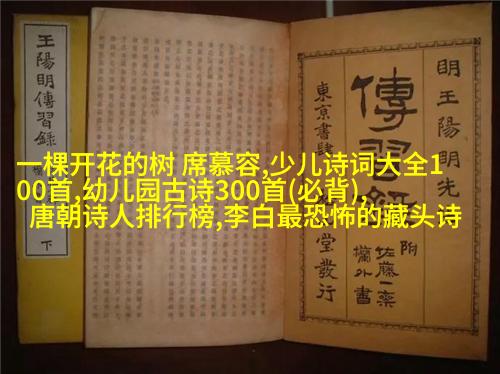 一棵开花的树 席慕容,少儿诗词大全1
00首,幼儿园古诗300首(必背),
唐朝诗人排行榜,李白最恐怖的藏头诗
明王陽明先
傳習錄
附
佐藤一齋
欄外書
東京書肆
堂發行
王陽明傳習錄
下